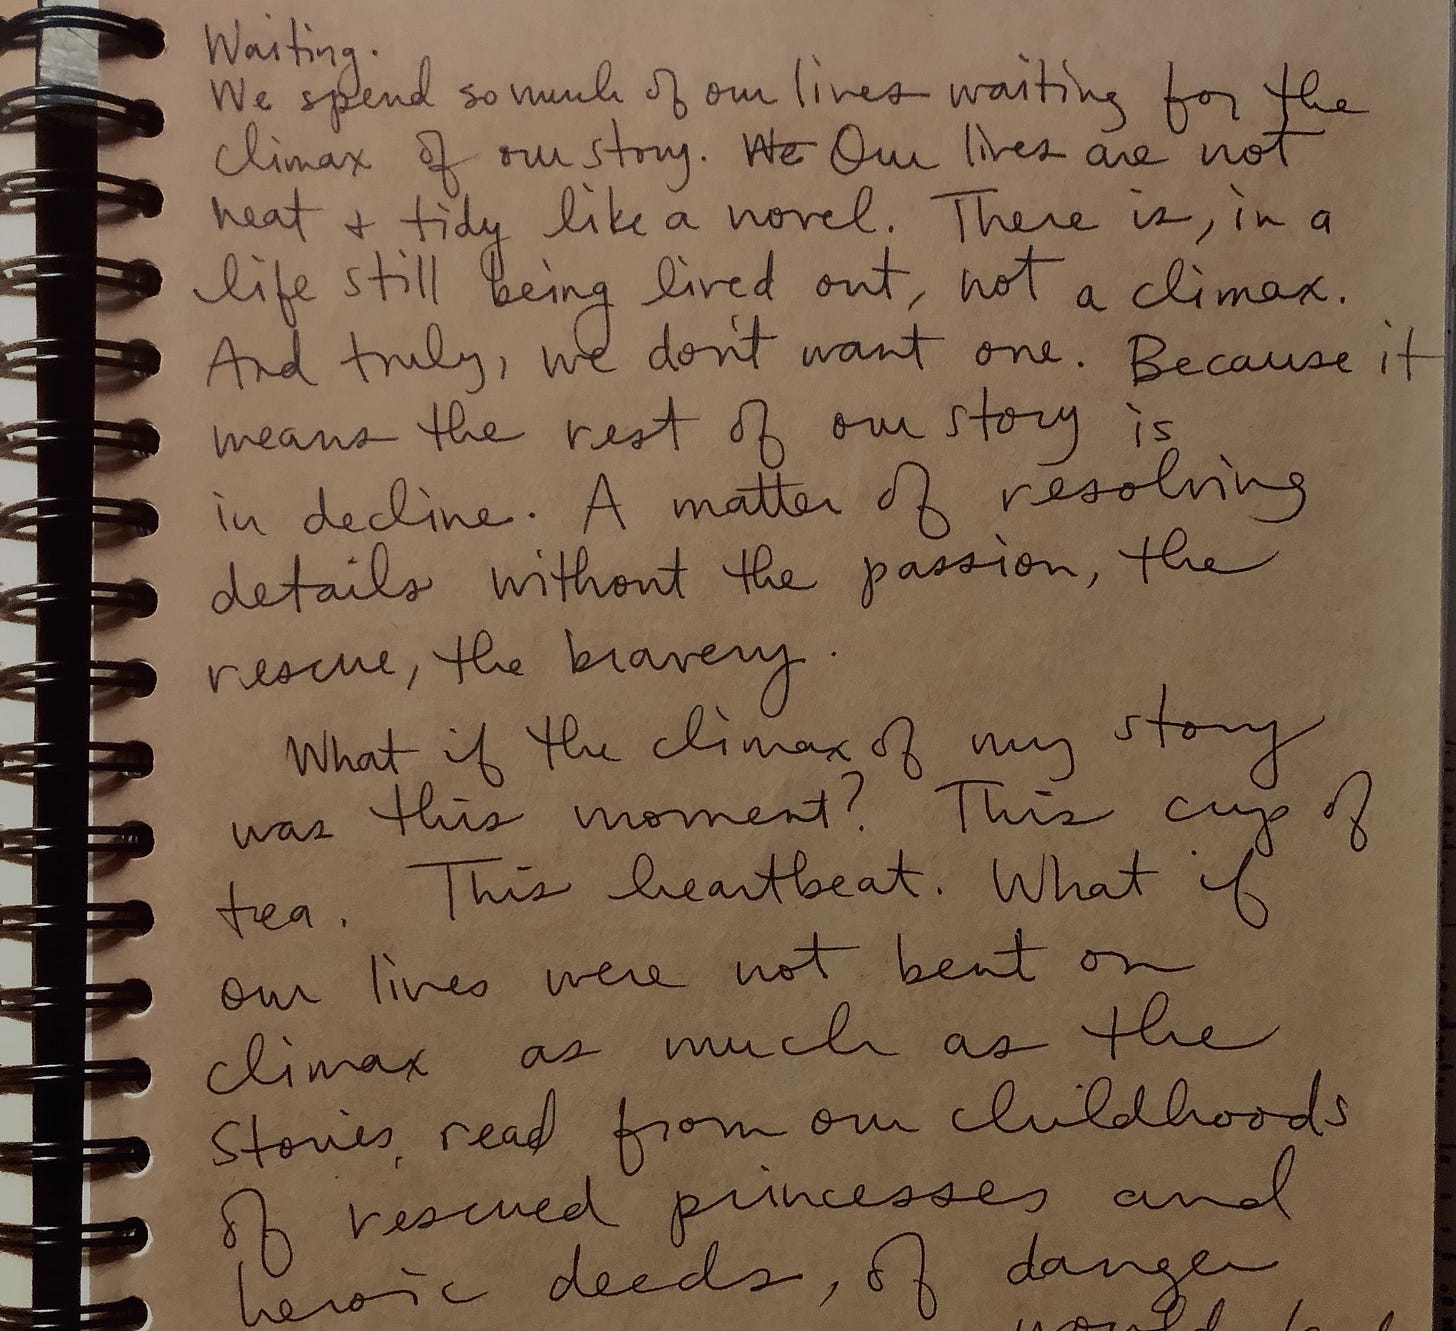 Waiting.
We spend so much of our lives waiting for the
climax of our story. We Our lives are not
neat + tidy like a novel. There is, in a
life still being lived out, not a climax.
And truly, we don't want one. Because it
means the rest of our story is
in decline. A matter of resolving
details without the passion, the
rescue, the bravery.
What if the climax of my story
was this moment? This cup of
tea. This heartbeat. What if
our lives were not bent on
climax as much as the
stories, read from our childhoods
of rescued princesses and
heroic deeds, of danger
would